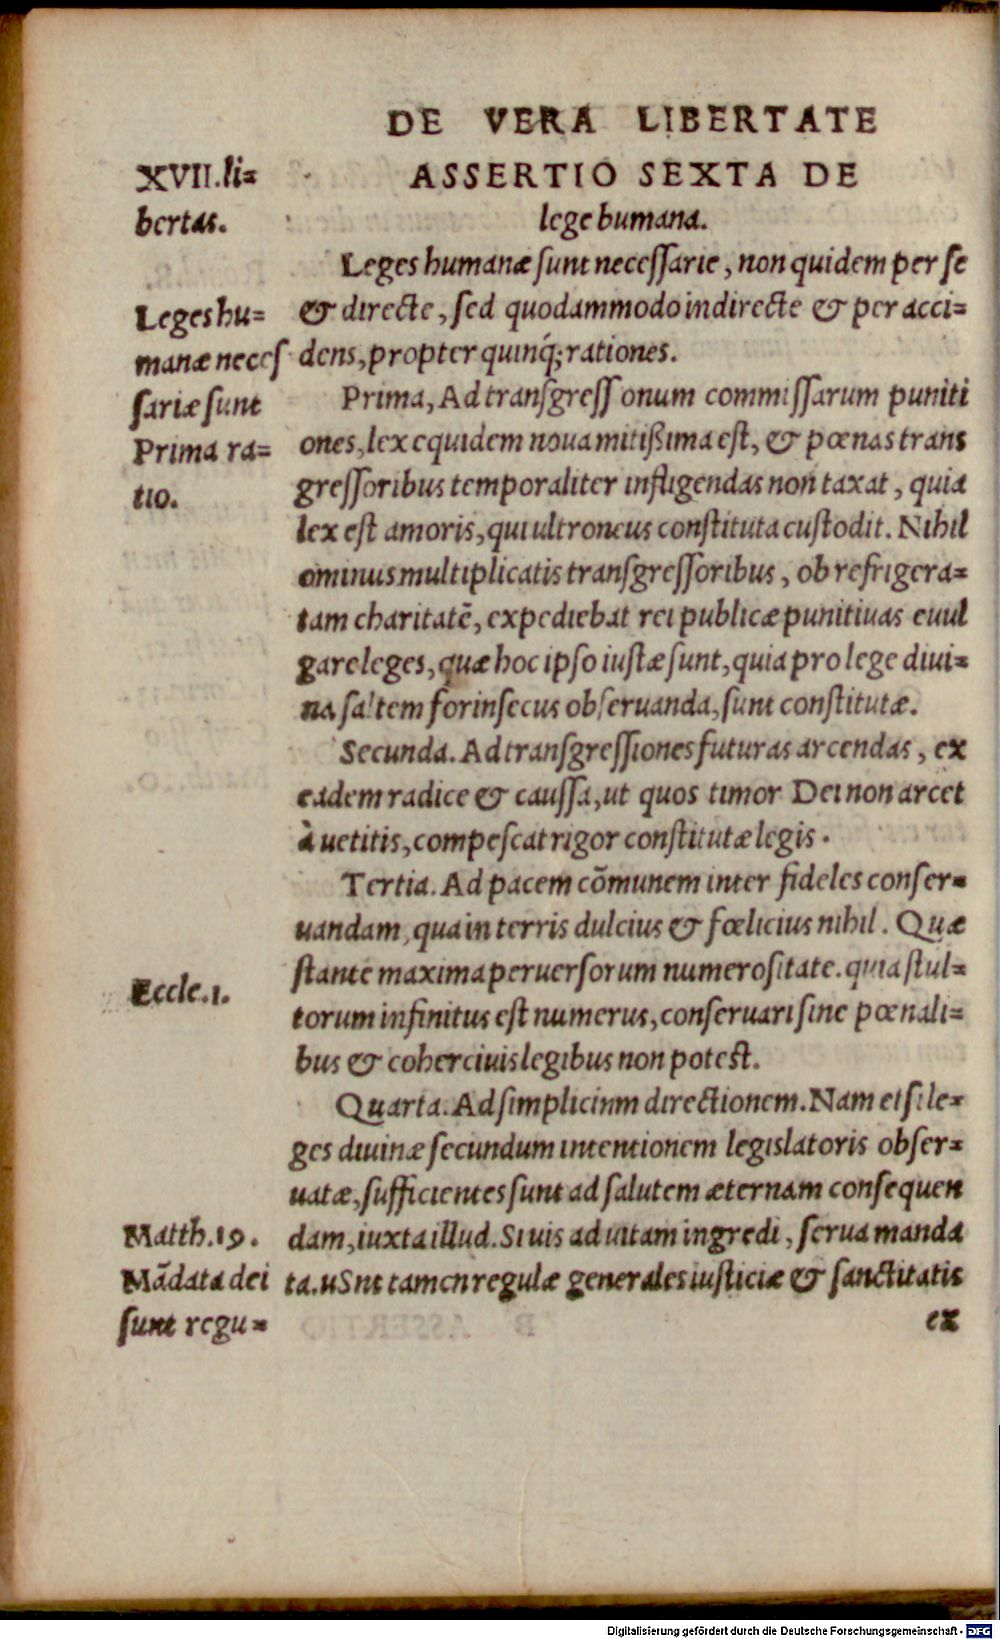 DE VERA LIBERTATE
XVII.li=
bertas.
ASSERTIO SEXTA DE
lege humana.
Leges humanæ sunt necessarie, non quidem per se
& directe, sed quodammodo indirecte & per acci=
dens, propter quinq́; rationes.
Leges hu=
manæ neces
sariæ sunt
Prima ra=
tio.
Prima, Ad transgress onum commissarum puniti
ones, lex equidem noua mitißima est, & pœnas trans
gressoribus temporaliter infligendas non taxat, quia
lex est amoris, qui ultroneus constituta custodit. Nihil
ominus multiplicatis transgressoribus, ob refrigera=
tam charitatē, expediebat rei publicæ punitiuas euul
gare leges, quæ hoc ipso iustæ sunt, quia pro lege diui=
na saltem forinsecus obseruanda, sunt constitutæ.
Secunda. Ad transgressiones futuras arcendas, ex
eadem radice & caussa, ut quos timor Dei non arcet
à uetitis, compescat rigor constitutæ legis.
Tertia. Ad pacem cōmunem inter fideles conser=
uandam, qua in terris dulcius & fœlicius nihil. Quæ
stante maxima peruersorum numerositate. quia stul=
torum infinitus est numerus, conseruari sine pœnali=
bus & coherciuis legibus non potest.
Eccle.1.
Quarta. Ad simplicium directionem. Nam etsi le=
ges diuinæ secundum intentionem legislatoris obser=
uatæ, sufficientes sunt ad salutem æternam consequen
dam, iuxta illud. Si uis ad uitam ingredi, serua manda
ta. uSnt tamen regulæ generales iusticiæ & sanctitatis
Matth.19.
Mādata dei
sunt regu=
ex
Digitalisierung gefördert durch die Deutsche Forschungsgemeinschaft - DFG